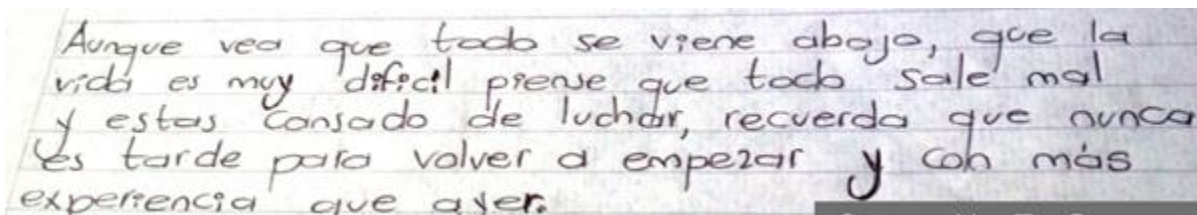 Aunque vea que todo se viene abajo, que la
vida es muy dificil piense que todo sale mal
y estas cansado de luchar, recuerda que nunca
es tarde para volver a empezar y con más
experiencia que ayer.